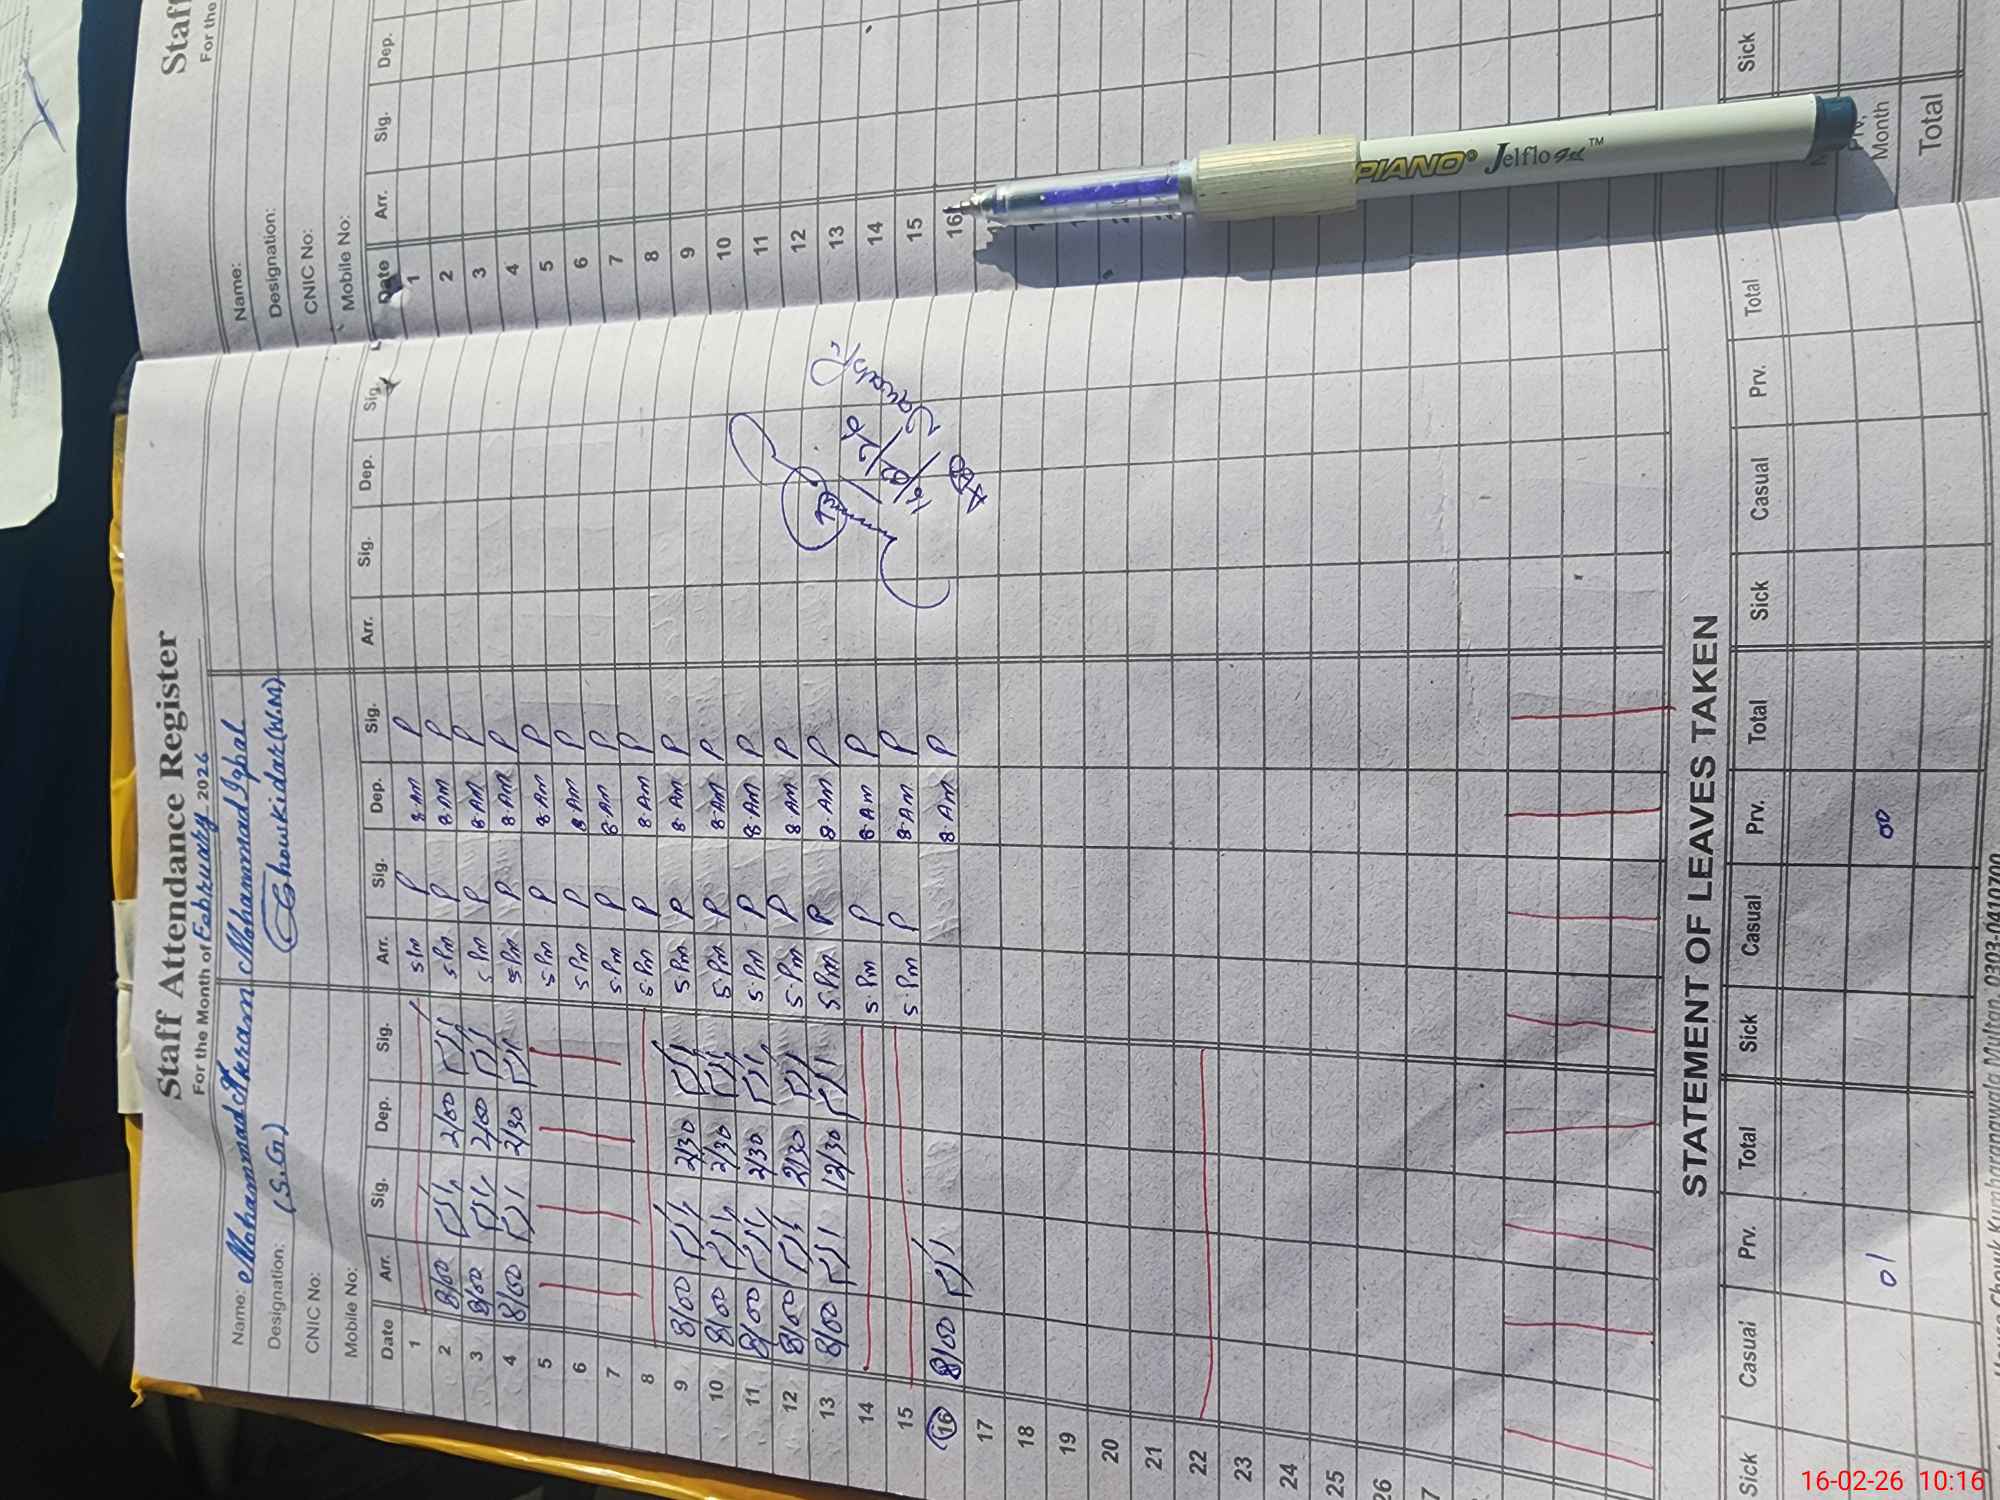 Staff Attendance Register
For the Month of Febbruary 2026
Name: Mohammad Akram
Mohammad Iqbal
Designation: (S.G)
Chowkidar (W.M)
CNIC No:
Mobile No:
Date Arr. Sig. Dep. Sig. Arr. Sig. Dep. Sig. Arr. Sig. Dep. Sig.
1 5 Pm P 8.AM P
2 8/00 2/00 5 Pm P 8.AM P
3 8/00 2/00 5 Pm P 8.AM P
4 8/00 2/30 5 Pm P 8.AM P
5 5 Pm P 8.AM P
6 5 Pm P 8.AM P
7 5 Pm P 8.AM P
8 5 Pm P 8.AM P
9 8/00 2/30 5 Pm P 8.AM P
10 8/00 2/30 5.Pm P 8.AM P
11 8/00 2/30 5.Pm P 8.AM P
12 8/00 2/30 5.Pm P 8.AM P
13 8/00 12/30 5.Pm P 8.AM P
14 5.Pm P 8.AM P
15 5.Pm P 8.AM P
16 8/00 8.AM P
16/02/26
17
18
19
20
21
22
23
24
25
26
7
STATEMENT OF LEAVES TAKEN
Sick Casual Prv. Total Sick Casual Prv. Total Sick Casual Prv. Total
01 00
Chowk Kumharanwala Multan. 0303-0410700
Staff
For the
Name:
Designation:
CNIC No:
Mobile No:
Date Arr. Sig. Dep.
1
2
3
4
5
6
7
8
9
10
11
12
13
14
15
16
Sick
Month
Total
PIANO® Jelflo Gel™
16-02-26 10:16